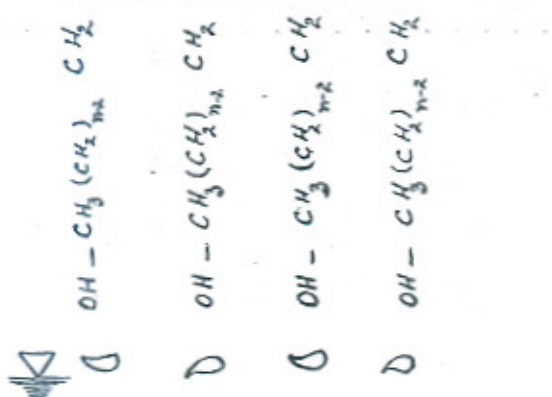 OH - CH3 (CH2)n-2 CH2
OH - CH3 (CH2)n-2 CH2
OH - CH3 (CH2)n-2 CH2
OH - CH3 (CH2)n-2 CH2